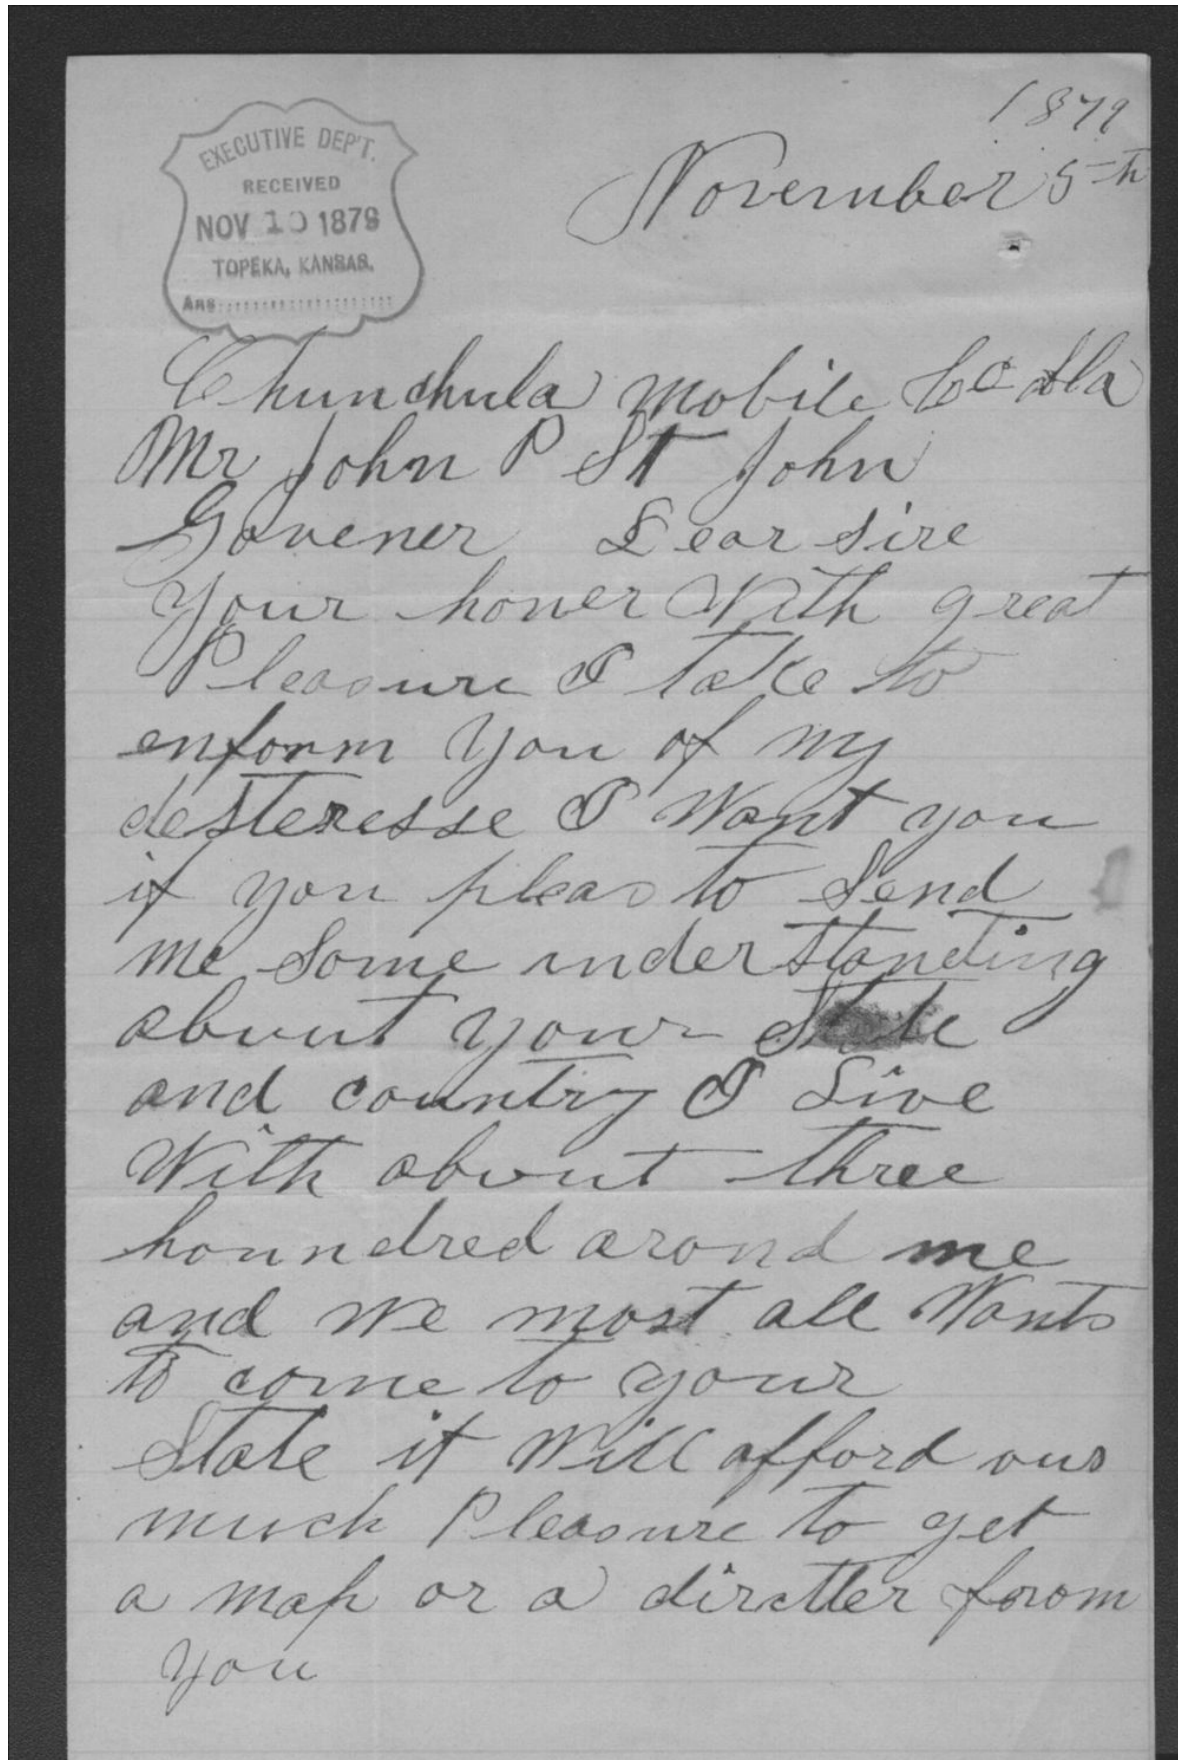 1879
November 5th
EXECUTIVE DEP'T.
RECEIVED
NOV 10 1879
TOPEKA, KANSAS.
Ans
Chunchula mobile Co Ala
Mr John P St John
Govener Dear Sire
Your honer With great
Pleasure I take to
enform you of my
desteresse I Want you
if you pleas to Send
me Some understanding
about your State
and country I Live
With about three
houndred arond me
and we most all Wants
to come to your
State it Will afford ous
much Pleasure to get
a map or a dirctter forom
you